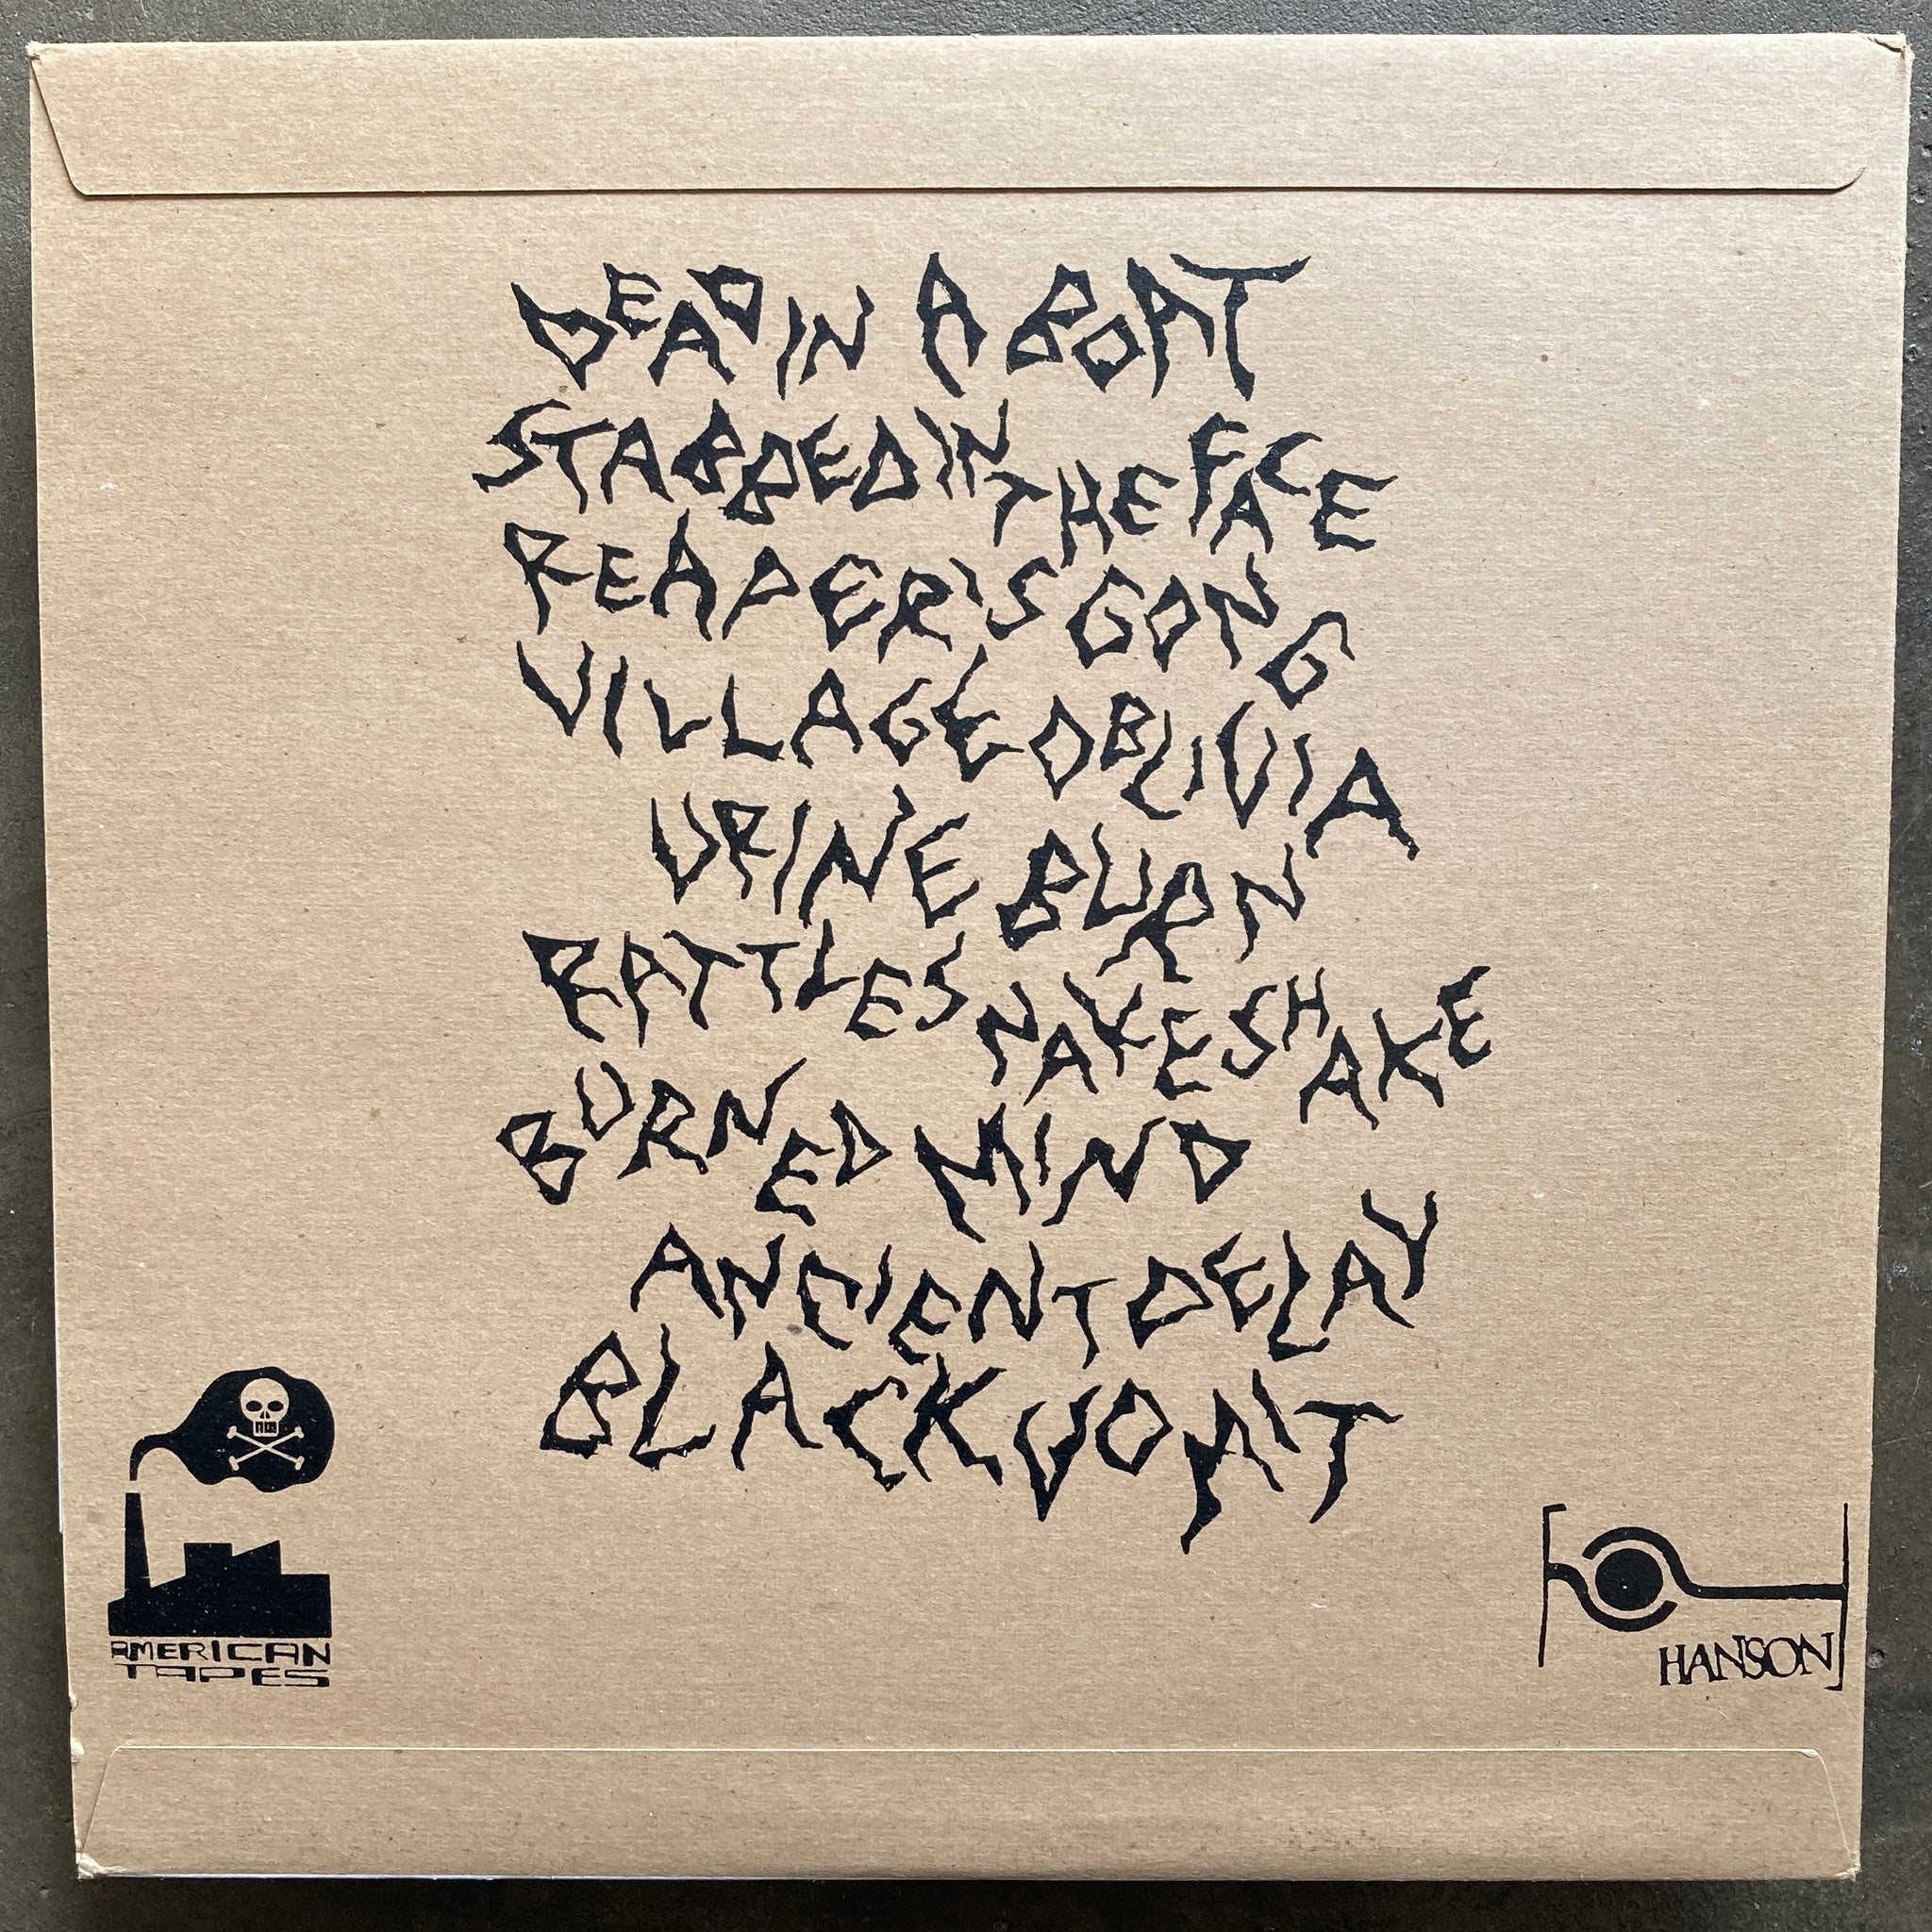 DEAD IN A BOAT
STABBED IN THE FACE
REAPER'S GONG
VILLAGE OBLIVIA
URINE BURN
RATTLESNAKE SHAKE
BURNED MIND
ANCIENT DELAY
BLACK VOMIT
AMERICAN
TAPES
HANSON